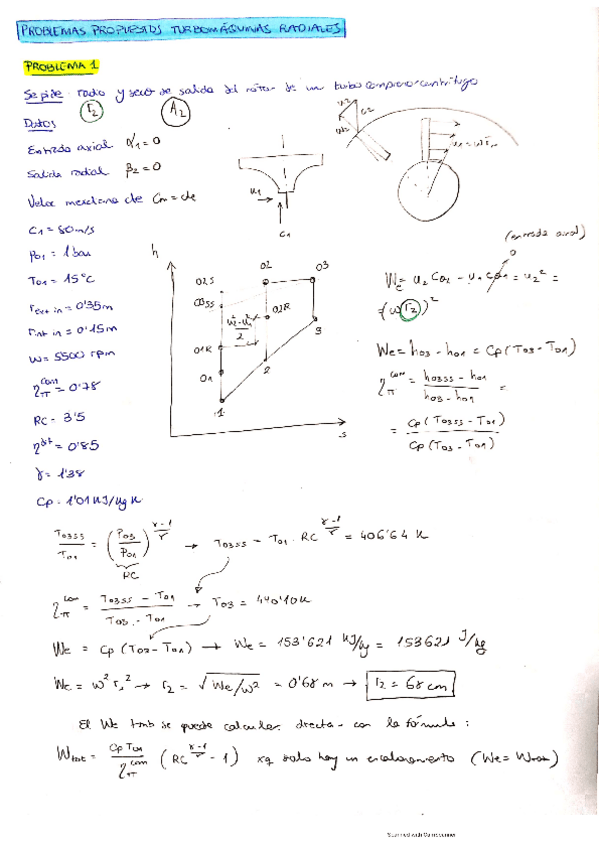 PROBLEMAS PROPUESTOS TURBOMÁQUINAS RADIALES
PROBLEMA 1
Se pide: radio y sección de salida del rotor de un turbocompresor centrífugo
r₂ A₂
Datos
Entrada axial α₁ = 0
Salida radial β₂ = 0
Veloc meridiana cte Cm = cte
C₁ = 80 m/s
P01 = 1 bar
T01 = 15°C
rext in = 0'35 m
rint in = 0'15 m
ω = 5500 rpm
η com π = 0'78
RC = 3'5
η = 0'85
γ = 1'38
Cp = 1'01 kJ/kg K
u₁
C₁
u₂
C₂
ω₂
h
02S
03SS
01R
01
1
02
02R
2
03
3
(u₂² - u₁²)/2
s
(entrada axial)
We = u₂ Cθ2 - u₁ Cθ1 = u₂² =
0
= (ω r₂)²
We = h03 - h01 = Cp (T03 - T01)
η com π = (h03SS - h01)/(h03 - h01) =
= Cp (T03SS - T01)/Cp (T03 - T01)
T03SS/T01 = (P03/P01)^((γ-1)/γ) → T03SS = T01 · RC^((γ-1)/γ) = 406'64 K
RC
η com π = (T03SS - T01)/(T03 - T01) → T03 = 440'10 K
We = Cp (T03 - T01) → We = 153'621 kJ/kg = 153621 J/kg
We = ω² r₂² → r₂ = √(We/ω²) = 0'68 m → r₂ = 68 cm
El We tmb se puede calcular directa- con la fórmula:
Wtot = (Cp T01/η com π) (RC^((γ-1)/γ) - 1) xq solo hay un escalonamiento (We = Wtot)
Scanned with CamScanner